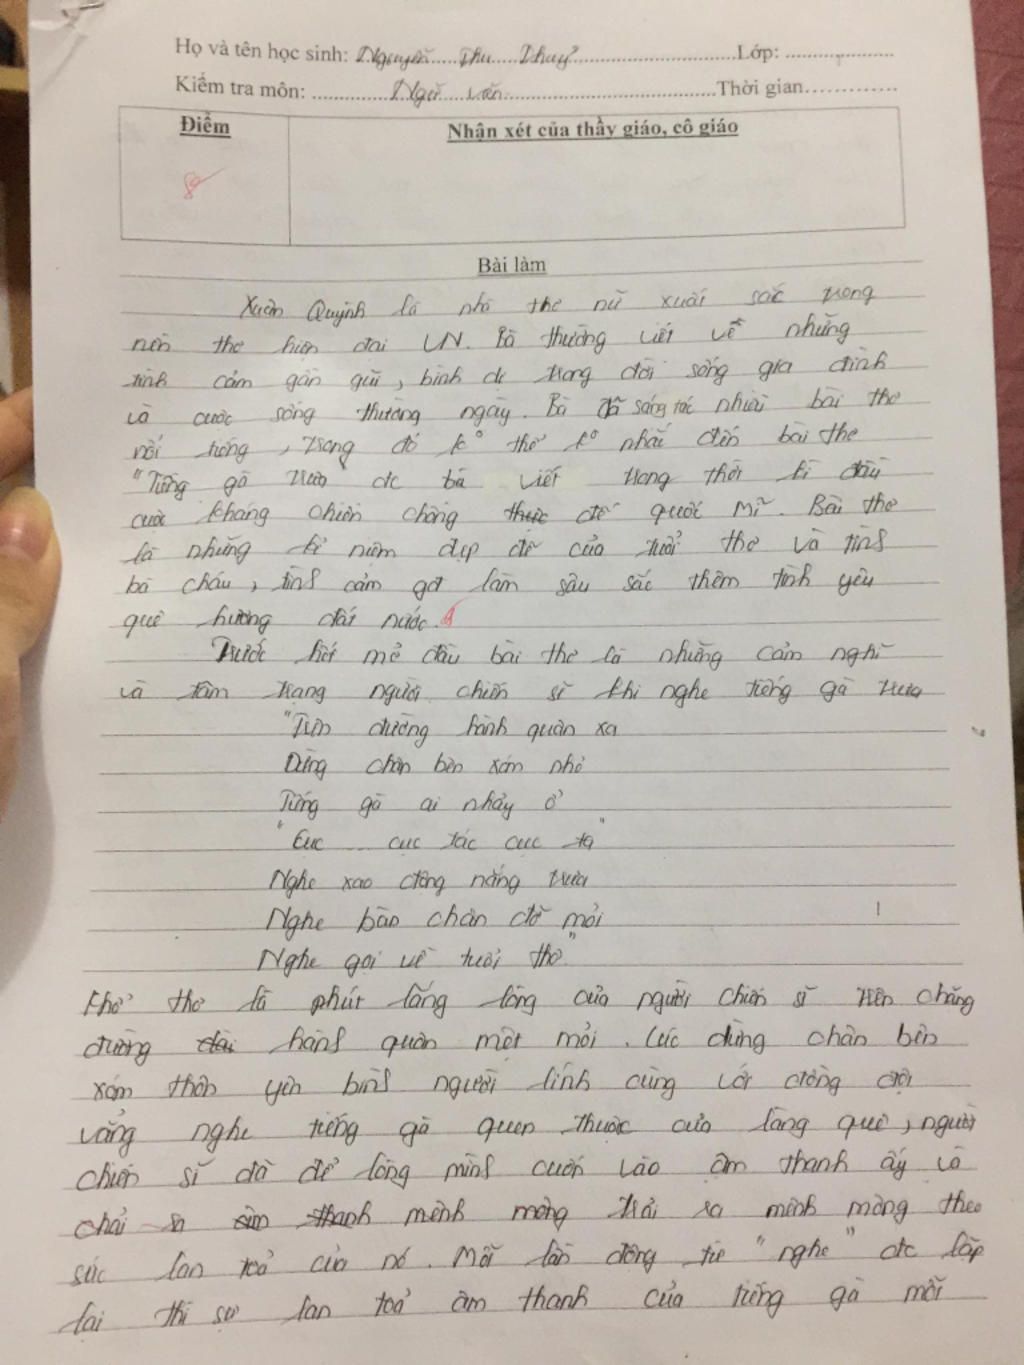 Họ và tên học sinh: Nguyễn Thu Thuỷ Lớp:
Kiểm tra môn: Ngữ văn Thời gian
Điểm
Nhận xét của thầy giáo, cô giáo
8
Bài làm
Xuân Quỳnh là nhà thơ nữ xuất sắc trong
nền thơ hiện đại VN. Bà thường viết về những
tình cảm gần gũi, bình dị trong đời sống gia đình
và cuộc sống thường ngày. Bà đã sáng tác nhiều bài thơ
nổi tiếng, trong đó k° thể k° nhắc đến bài thơ
"Tiếng gà trưa" đc bà viết trong thời kì đầu
cuộc kháng chiến chống đế quốc Mĩ. Bài thơ
là những kỉ niệm đẹp đẽ của tuổi thơ và tình
bà cháu, tình cảm gđ làm sâu sắc thêm tình yêu
quê hương đất nước.
Trước hết mở đầu bài thơ là những cảm nghĩ
và tâm trạng người chiến sĩ khi nghe tiếng gà trưa
"Trên đường hành quân xa
Dừng chân bên xóm nhỏ
Tiếng gà ai nhảy ổ
"Cục ... cục tác cục ta"
Nghe xao động nắng trưa
Nghe bàn chân đỡ mỏi
Nghe gọi về tuổi thơ"
Khổ thơ là phút lắng lòng của người chiến sĩ trên chặng
đường dài hành quân mệt mỏi. Lúc dừng chân bên
xóm thôn yên bình người lính cùng với đồng đội
vẳng nghe tiếng gà quen thuộc của làng quê, người
chiến sĩ đã để lòng mình cuốn vào âm thanh ấy và
chải ra mênh mông trải ra mênh mông theo
sức lan toả của nó. Mỗi lần động từ "nghe" đc lặp
lại thì sự lan toả âm thanh của tiếng gà mỗi